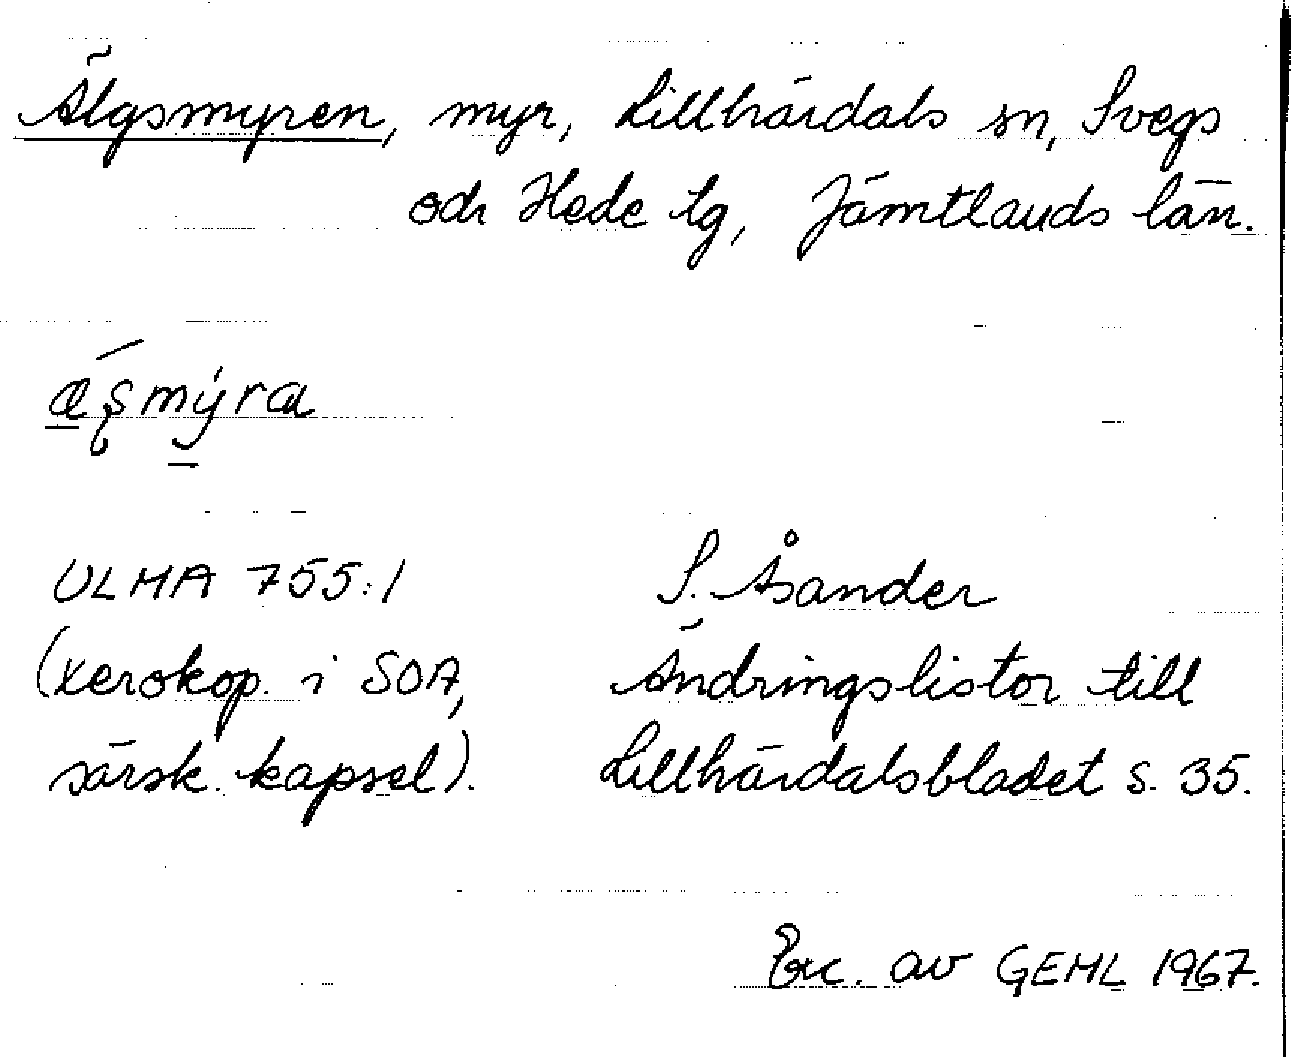 Älgsmyren, myr, Lillhärdals sn, Svegs
och Hede tg, Jämtlands län.
ǽʂmýra
ULMA 755:1
(xerokop. i SOA,
särsk. kapsel).
S. Åsander
Ändringslistor till
Lillhärdalsbladet s. 35.
Exc. av GEHL 1967.